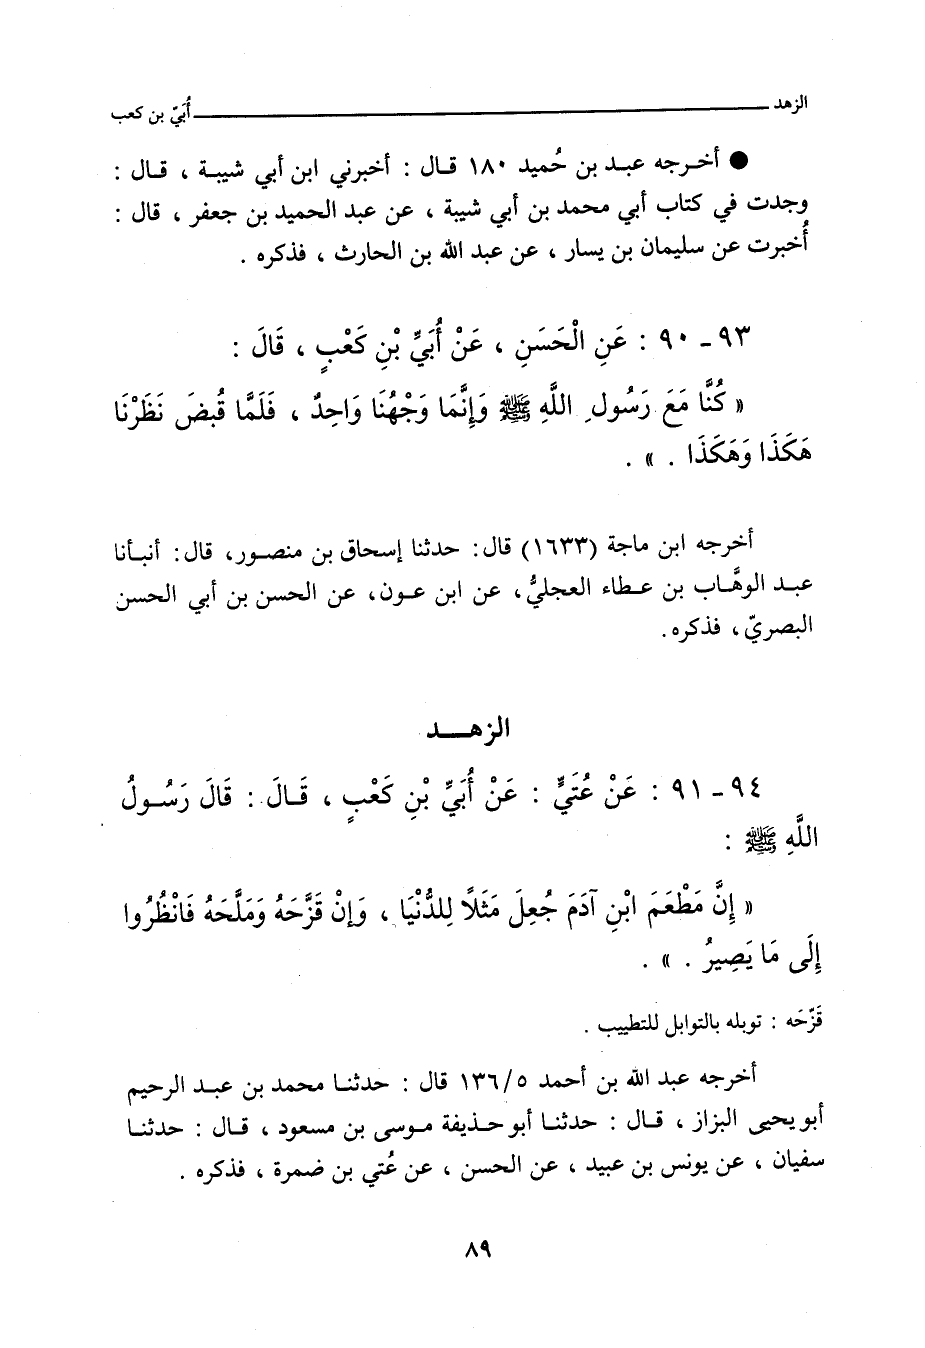 الزهد ـــــ أُبَيّ بن كعب
● أخـرجه عبـد بن حُميد ١٨٠ قـال : أخبرني ابن أبي شيبة ، قـال :
وجدت في كتاب أبي محمد بن أبي شيبة ، عن عبد الحميد بن جعفر ، قال :
أُخبرت عن سليمان بن يسار ، عن عبد الله بن الحارث ، فذكره .
٩٣ - ٩٠ : عَنِ الْحَسَنِ ، عَنْ أُبَيِّ بْنِ كَعْبٍ ، قَالَ :
« كُنَّا مَعَ رَسُولِ اللَّهِ ﷺ وَإِنَّمَا وَجْهُنَا وَاحِدٌ ، فَلَمَّا قُبِضَ نَظَرْنَا
هَكَذَا وَهَكَذَا . » .
أخرجه ابن ماجة (١٦٣٣) قال: حدثنا إسحاق بن منصـور، قال: أنبـأنا
عبـد الوهَّـاب بن عـطاء العجليُّ، عن ابن عـون، عن الحسن بن أبي الحسن
البصريّ، فذكره.
الزهـــد
٩٤ - ٩١ : عَنْ عُتَيٍّ : عَنْ أُبَيِّ بْنِ كَعْبٍ ، قَـالَ : قَالَ رَسُـولُ
اللَّهِ ﷺ :
« إِنَّ مَطْعَمَ ابْنِ آدَمَ جُعِلَ مَثَلًا لِلدُّنْيَا ، وَإِنْ قَزَّحَهُ وَمَلَّحَهُ فَانْظُرُوا
إِلَى مَا يَصِيرُ . » .
قَزَّحَه : توبله بالتوابل للتطييب .
أخرجه عبد الله بن أحمد ١٣٦/٥ قال : حدثنـا محمد بن عبـد الرحيم
أبو يحيى البزاز ، قـال : حدثنـا أبو حـذيفة مـوسى بن مسعود ، قـال : حدثنـا
سفيان ، عن يونس بن عبيد ، عن الحسن ، عن عُتي بن ضمرة ، فذكره .
٨٩